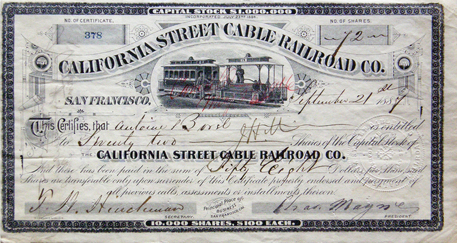 CAPITAL STOCK $1,000,000
NO. OF CERTIFICATE.
NO. OF SHARES.
378
72
CALIFORNIA STREET CABLE RAILROAD CO.
SAN FRANCISCO, September 21 1887
This Certifies, that Antoine Borel is entitled
to Seventy two Shares of the Capital Stock of
THE CALIFORNIA STREET CABLE RAILROAD CO.
And there has been paid in the sum of Fifty Eight Dollars per Share, said
Shares are transferable only upon surrender of this Certificate properly endorsed and payment of
all previous calls, assessments or installments thereon.
SECRETARY
PRESIDENT
10,000 SHARES, $100 EACH.